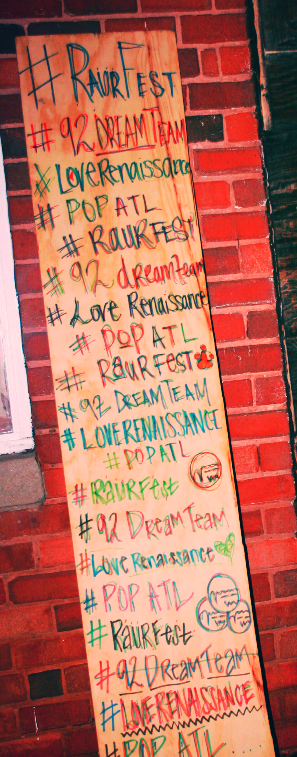 #RAURFEST
#92DREAMTEAM
#LoveRenaissance
#POP ATL
#RAURFEST
#92 dreamteam
#Love Renaissance
#POP ATL
#RAURFEST
#92 DREAMTEAM
#LOVERENAISSANCE
#POPATL
#RAURFest
#92 DreamTeam
#Love Renaissance
#POP ATL
#RAURFest
#92DreamTeam
#LOVERENAISSANCE
#POP ATL.....